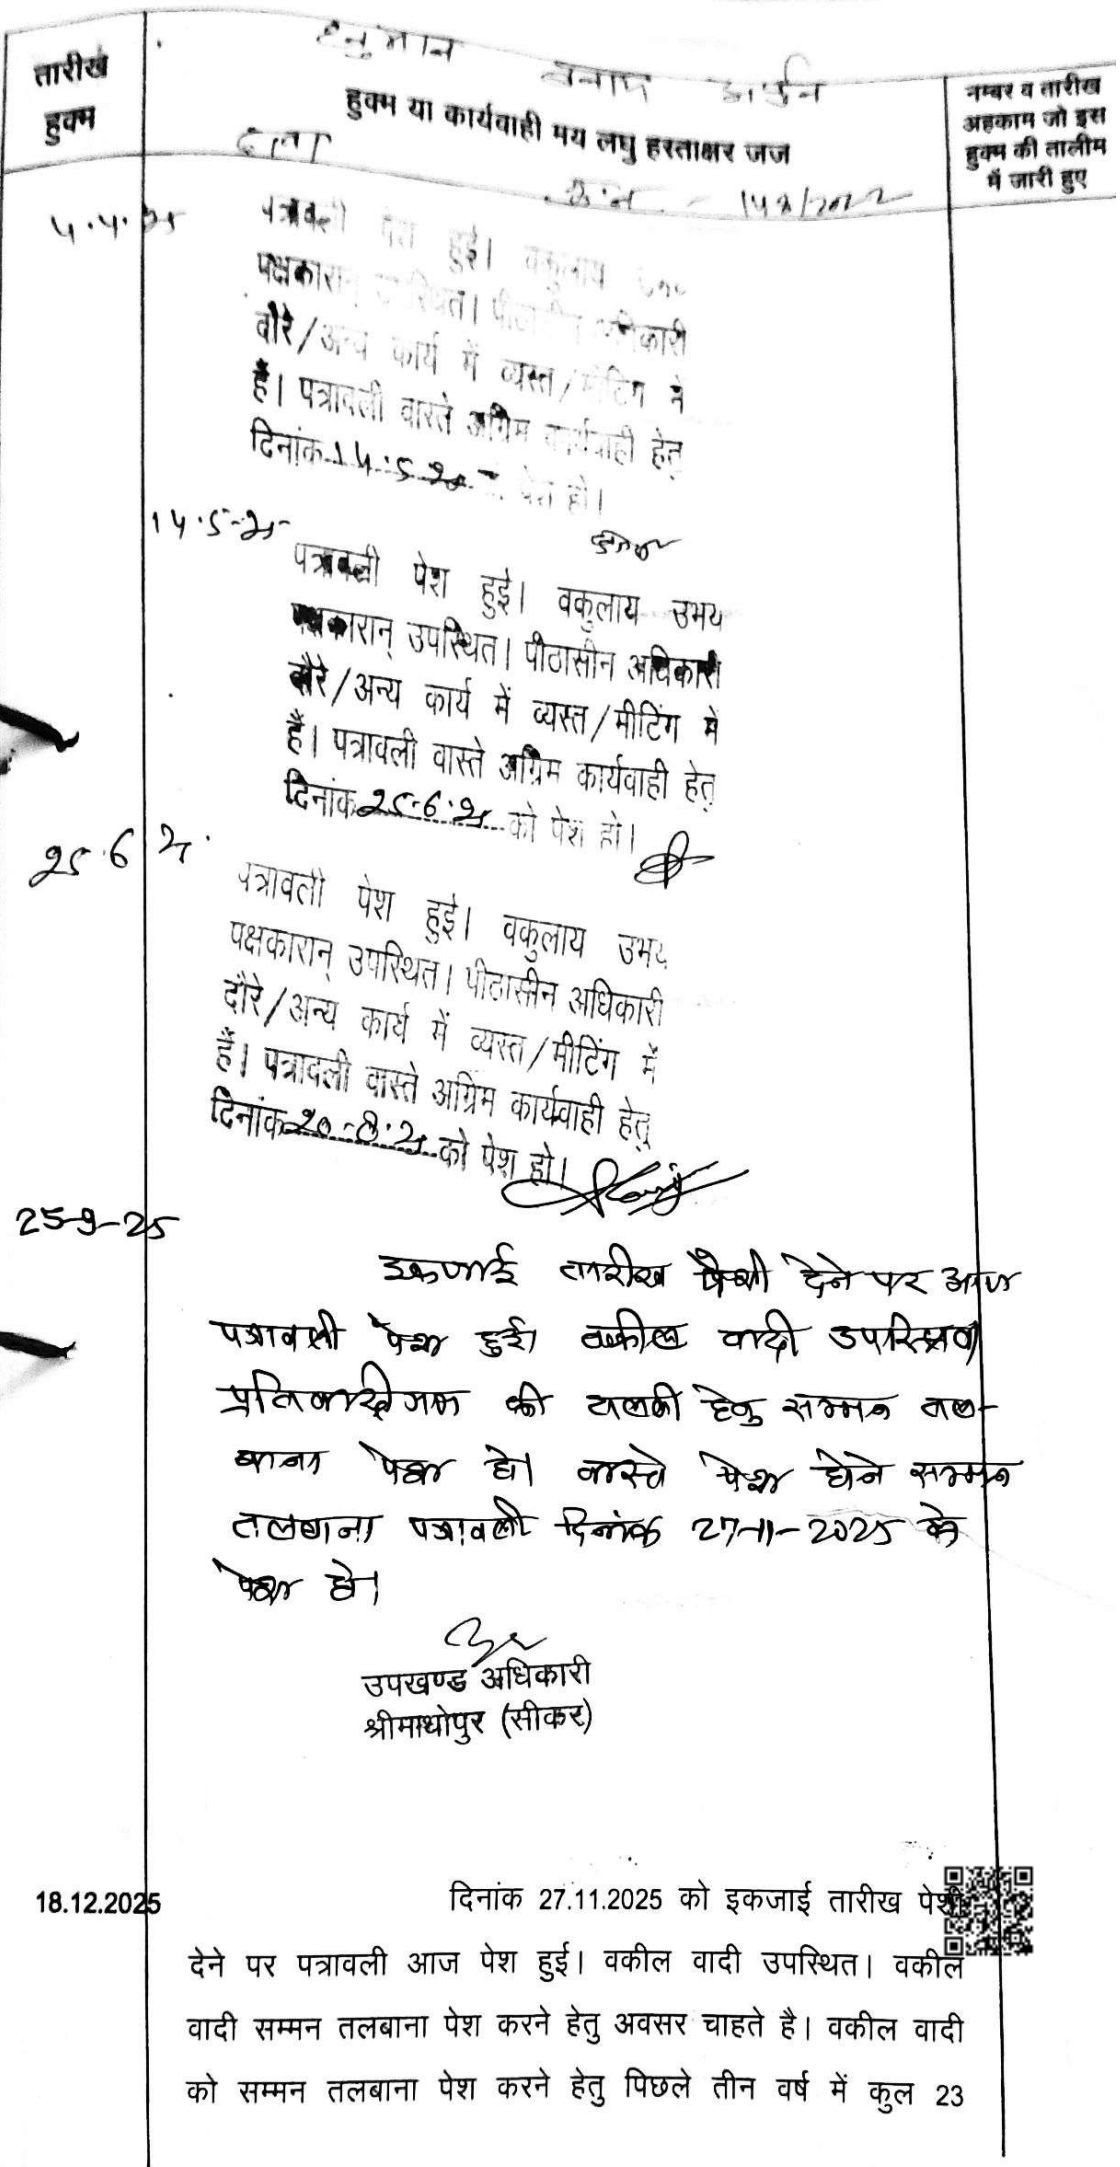 हनुमान बनाम अर्जुन
तारीख हुक्म
हुक्म या कार्यवाही मय लघु हस्ताक्षर जज
नम्बर व तारीख
अहकाम जो इस
हुक्म की तालीम
में जारी हुए
दावा
मु.न. - 142/2022
4.4.25
पत्रावली पेश हुई। वकुलाय
पक्षकारान् उपस्थित। पीठासीन अधिकारी
दौरे/अन्य कार्य में व्यस्त/मीटिंग में
हैं। पत्रावली वास्ते अग्रिम कार्यवाही हेतु
दिनांक 14.5.25 पेश हो।
14-5-25
पत्रावली पेश हुई। वकुलाय उभय
पक्षकारान् उपस्थित। पीठासीन अधिकारी
दौरे/अन्य कार्य में व्यस्त/मीटिंग में
हैं। पत्रावली वास्ते अग्रिम कार्यवाही हेतु
दिनांक 25.6.25 को पेश हो।
25.6.25
पत्रावली पेश हुई। वकुलाय उभय
पक्षकारान् उपस्थित। पीठासीन अधिकारी
दौरे/अन्य कार्य में व्यस्त/मीटिंग में
हैं। पत्रावली वास्ते अग्रिम कार्यवाही हेतु
दिनांक 20-8.25 को पेश हो।
25-9-25
इकजाई तारीख पेशी देने पर आज
पत्रावली पेश हुई। वकील वादी उपस्थित।
प्रतिवादीगण की तलबी हेतु सम्मन तल-
बाना पेश हो। वास्ते पेश होने सम्मन
तलबाना पत्रावली दिनांक 27-11-2025 को
पेश हो।
उपखण्ड अधिकारी
श्रीमाधोपुर (सीकर)
18.12.2025
दिनांक 27.11.2025 को इकजाई तारीख पेशी
देने पर पत्रावली आज पेश हुई। वकील वादी उपस्थित। वकील
वादी सम्मन तलबाना पेश करने हेतु अवसर चाहते है। वकील वादी
को सम्मन तलबाना पेश करने हेतु पिछले तीन वर्ष में कुल 23